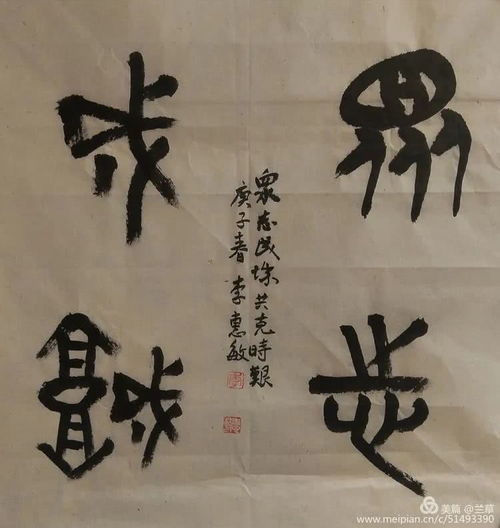 衆志
成城
衆志成城共克時艱
庚子春 李惠敏
美篇 @兰草
www.meipian.cn/c/51493390